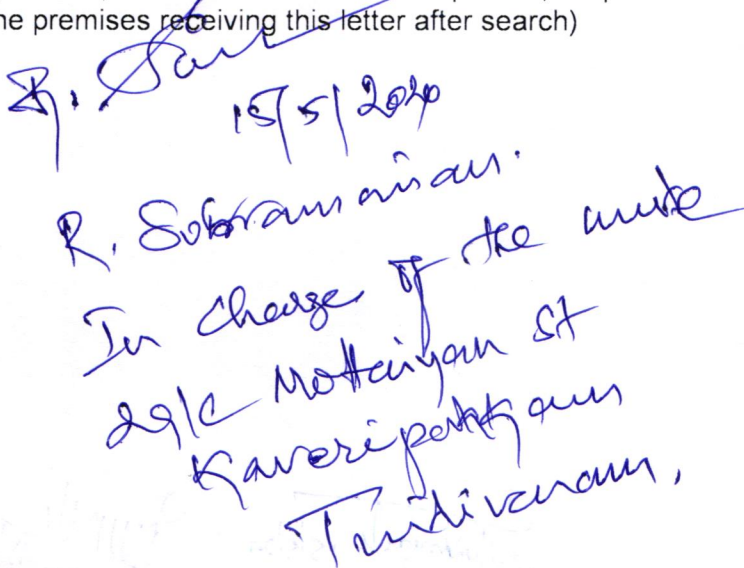 ne premises receiving this letter after search)
R.
15/5/2020
R. Subramanian.
In charge of the unit
29/C Mottaiyan St
Kaveripakkam
Tindivanam,